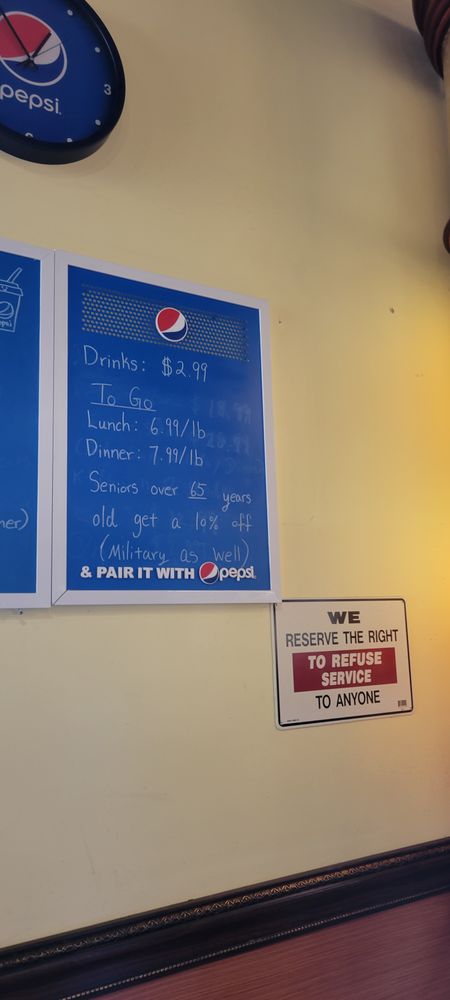 pepsi
3
Drinks: $2.99
To Go
Lunch: 6.99/lb
Dinner: 7.99/lb
Seniors over 65 years
old get a 10% off
(Military as well)
& PAIR IT WITH pepsi
WE
RESERVE THE RIGHT
TO REFUSE
SERVICE
TO ANYONE